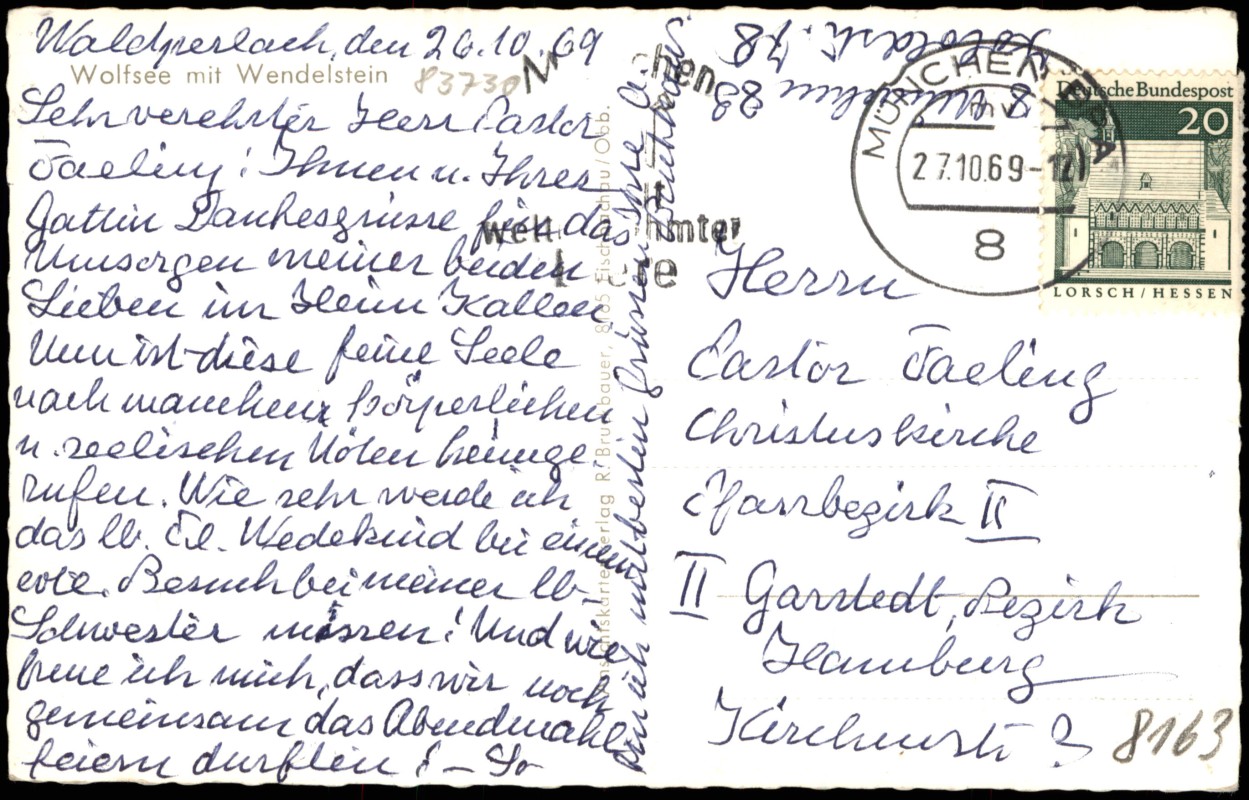 Waldperlach, den 26.10.69
Wolfsee mit Wendelstein
83730
Sehr verehrter Herr Pastor
Faeling! Ihnen u. Ihrer
Gattin Dankesgrüsse für das
Umsorgen meiner beiden
Lieben im Heim Kallen
Nun ist diese feine Seele
nach manchen körperlichen
u. seelischen Nöten heimge
rufen. Wie sehr werde ich
das lb. Frl. Wedekind bei einem
evtl. Besuch bei meiner lb.
Schwester missen! Und wie
freue ich mich, dass wir noch
gemeinsam das Abendmahl
feiern durften! – So
bin ich mit besten Grüssen Ihre
Ansichtskartenverlag R. Brunnbauer, 8165 Fischbachau/Obb.
8 München 83
78
MÜNCHEN
27.10.69-17
8
Deutsche Bundespost
20
LORSCH/HESSEN
Herrn
Pastor Faeling
Christuskirche
Pfarrbezirk II
II Garstedt, Bezirk
Hamburg
Kirchenstr. 3
8163